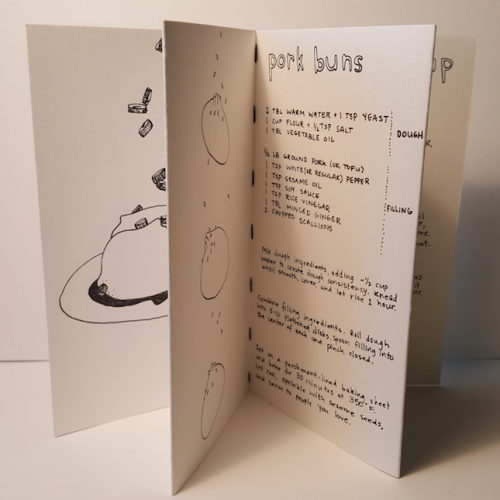 pork buns
2 TBL WARM WATER + 1 TSP YEAST
1 CUP FLOUR + ½ TSP SALT
1 TBL VEGETABLE OIL
DOUGH
½ LB GROUND PORK (OR TOFU)
1 TSP WHITE (OR REGULAR) PEPPER
1 TSP SESAME OIL
1 TSP SOY SAUCE
1 TSP RICE VINEGAR
1 TBL MINCED GINGER
2 CHOPPED SCALLIONS
FILLING
Mix dough ingredients, adding ~½ cup
water to create dough consistency. Knead
until smooth, cover and let rise 1 hour.
Combine filling ingredients. Roll dough
into 8-10 flattened disks, spoon filling into
the center of each and pinch closed.
Set on a parchment-lined baking sheet
and bake for 30 minutes at 350° F.
Let cool, sprinkle with sesame seeds,
and serve to people you love.
UP